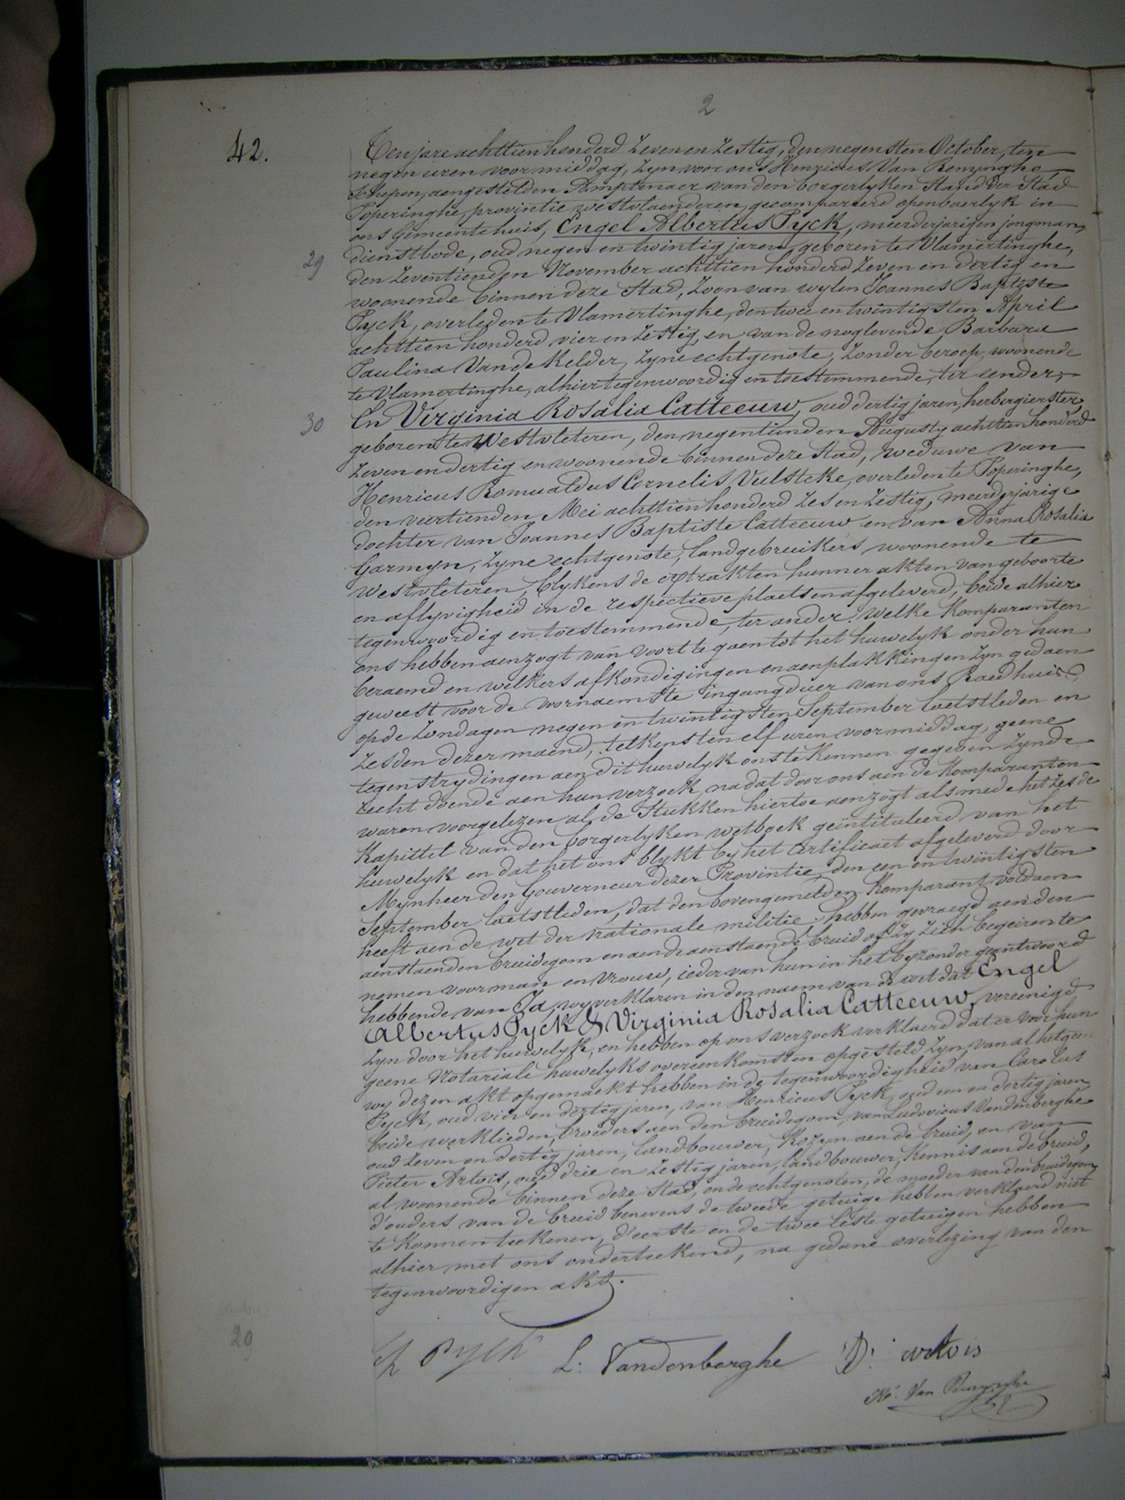 2
42.
Ten jare achttien honderd zeven en zestig, den negensten October, ten
negen uren voormiddag, zyn voor ons Henricus Van Renynghe
Schepen, aengestelden Amptenaer van den borgerlyken Stand der Stad
Poperinghe, provincie westvlaenderen, gecompareerd openbaerlyk in
ons Gemeentehuis, Engel Albertus Pyck, meerderjarigen jongman,
29
dienstbode, oud negen en twintig jaren, geboren te Vlamertinghe,
den zeventienden November achttien honderd zeven en dertig en
woonende binnen deze Stad, zoon van wylen Joannes Baptiste
Pyck, overleden te Vlamertinghe, den twee en twintigsten April
achttien honderd vier en zestig, en van de noglevende Barbara
Paulina Van de Kelder, zyne echtgenote, zonder beroep, woonende
te Vlamertinghe, alhier tegenwoordig en toestemmende, ter eender,
30
En Virginia Rosalia Catteeuw, oud dertig jaren, herbergierster
geboren te Westvleteren, den negentienden Augusty achttien honderd
zeven en dertig en woonende binnen deze Stad, weduwe van
Henricus Romualdus Cornelis Vulsteke, overleden te Poperinghe,
den veertienden Mei achttien honderd zes en zestig, meerderjarige
dochter van Joannes Baptiste Catteeuw en van Anna Rosalia
Garmyn, zyne echtgenote, landgebruikers, woonende te
Westvleteren, blykens de extrakten hunner akten van geboorte
en aflyvigheid in de respectieve plaetsen afgeleverd, beide alhier
tegenwoordig en toestemmende, ter ander. Welke Komparanten
ons hebben aenzogt van voort te gaen tot het huwelyk onder hun
beraemd en welkers afkondigingen en aenplakkingen zyn gedaen
geweest voor de vornaemste ingangdeur van ons Raedhuis
op de zondagen negen en twintigsten September laetstleden en
zesden dezer maend, telkens ten elf uren voormiddag, geene
tegenstrydingen aen dit huwelyk ons te kennen gegeven zynde
recht doende aen hun verzoek, nadat door ons aen de Komparanten
waren voorgelezen al de Stukken hiertoe aenzogt alsmede het zesde
Kapittel van den borgerlyken wetboek geintituleerd van het
huwelyk en dat het ons blykt by het certificaet afgeleverd door
Mynheer den Gouverneur dezer Provintie, den een en twintigsten
September laetstleden, dat den bovengemelden Komparant voldaen
heeft aen de wet der nationale militie, hebben gevraegd aen den
aenstaenden bruidegom en aen de aenstaende bruid of zy zich begeiren te
nemen voor man en vrouw, ieder van hun in het byzonder geantwoord
hebbende van Ja, wy verklaren in den naem van de wet dat Engel
Albertus Pyck & Virginia Rosalia Catteeuw, vereenigd
zyn door het huwelyk, en hebben op ons verzoek verklaerd dat er voor hun
geene Notariale huwelyks overeenkomsten opgesteld zyn, van al hetgeen
wy dezen akt opgemaekt hebben in de tegenwoordigheid van Carolus
Pyck, oud vier en dertig jaren, van Henricus Pyck, oud een en dertig jaren
beide werklieden, broeders aen den bruidegom, van Ludovicus Vandenberghe
oud zeven en dertig jaren, landbouwer, Kozyn aen de bruid, en van
Pieter Artois, oud drie en zestig jaren, landbouwer, kennis aen de bruid,
al woonende binnen deze Stad, en de echtgenoten, de moeder van den bruidegom,
d'ouders van de bruid benevens de tweede getuige hebben verklaerd niet
te konnen teekenen, d'eerste en de twee leste getuigen hebben
alhier met ons onderteekend, na gedane overlezing van den
tegenwoordigen akt.
29
Pyck L: Vandenberghe D: artois
He. Van Renynghe